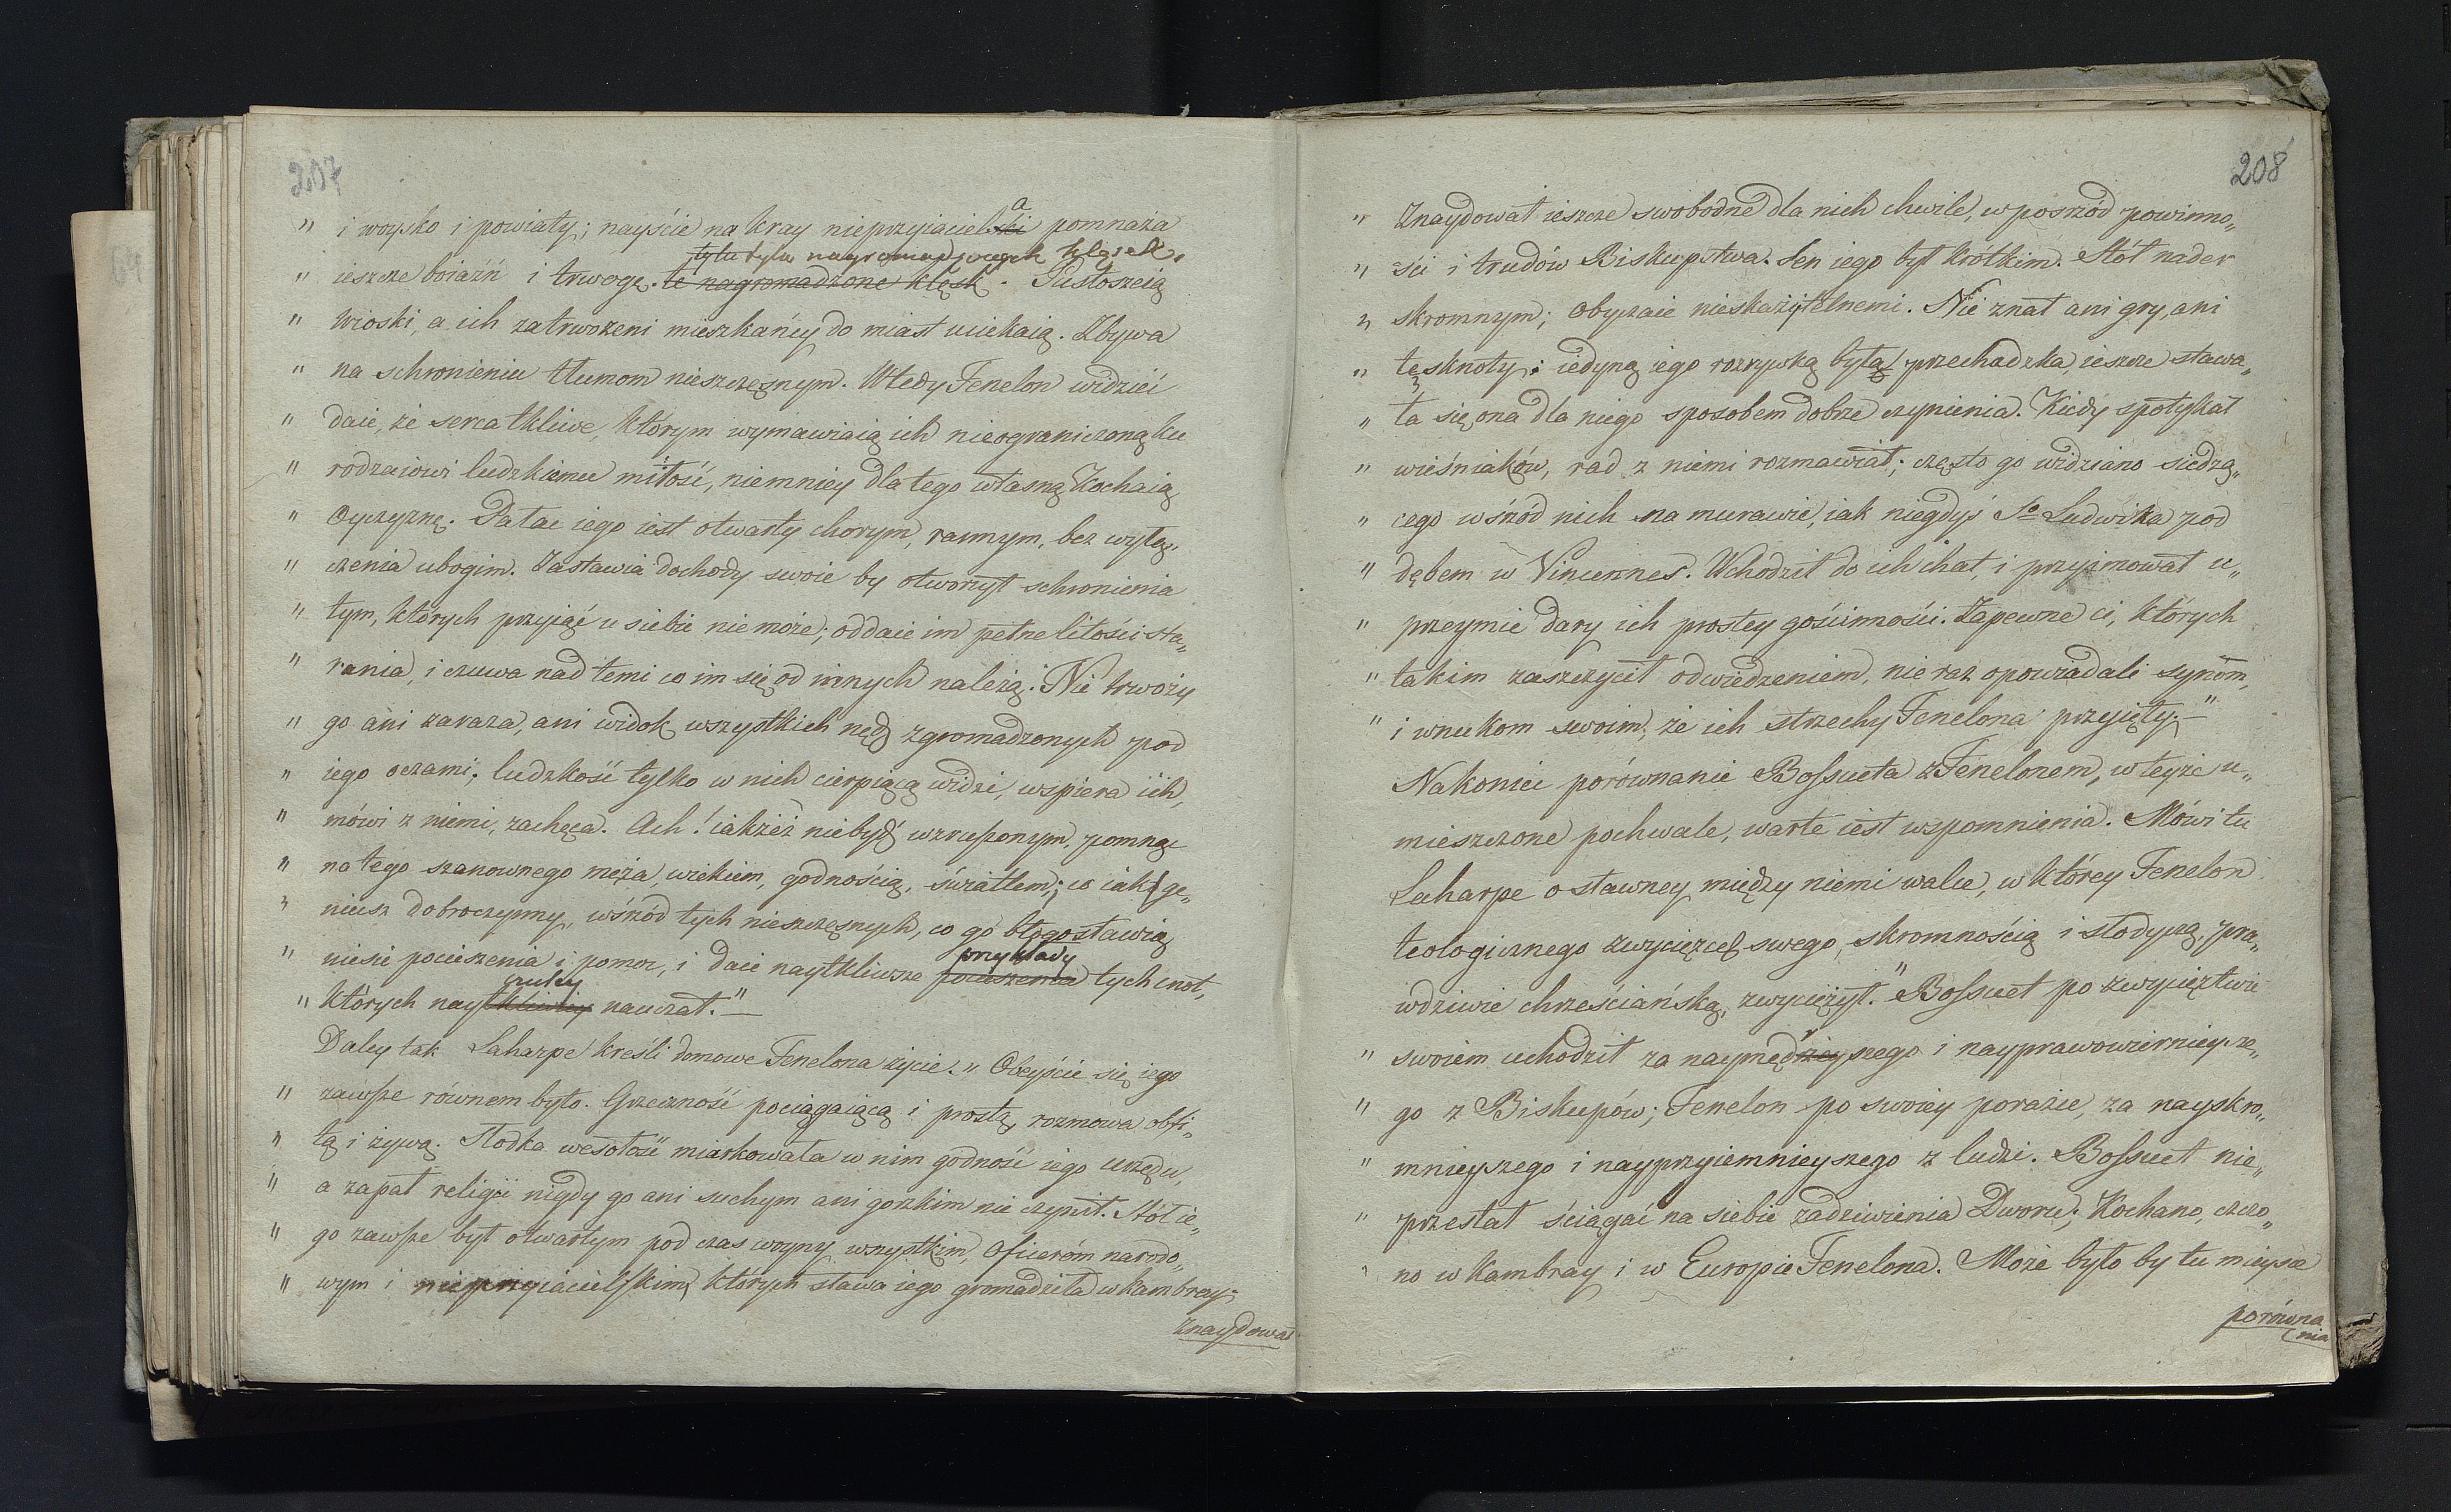 207
" i woysko i powiaty; nayście na kray nieprzyiaciela pomnaża
tylu tylu nagromadzonych klęsek.
" ieszcze boiaźń i trwogę. te nagromadzone klęsk. Pustoszeią
" wioski, a ich zatrwożeni mieszkańcy do miast uciekaią. Zbywa
" na schronieniu tłumom nieszczęsnym. Wtedy Fenelon widzieć
" daie, że serca tkliwe, którym wymawiaią ich nieograniczoną ku
" rodzaiowi ludzkiemu miłość, niemniey dla tego własną kochaią
" Oyczyznę. Pałac iego iest otwarty chorym, rannym, bez wyłą„
" czenia ubogim. Zastawia dochody swoie by otworzył schronienia
" tym, których przyiąć u siebie niemoże; oddaie im pełne litości sta„
" rania, i czuwa nad temi co im się od innych należą. Nie trwoży
" go ani zaraza, ani widok wszystkich nędz zgromadzonych pod
" iego oczami; ludzkość tylko w nich cierpiącą widzi, wspiera ich,
" mówi z niemi, zachęca. Ach! iakżeż niebydź wzruszonym, pomnąc
" na tego szanownego męża, wiekiem, godnością, światłem; co iak ge„
" niusz dobroczynny, wśród tych nieszczęsnych, co go błogosławią
przykłady
" niesie pocieszenia i pomoc, i daie naytkliwsze pocieszenia tych cnot,
czuley
" których naytkliwiey nauczał." —
Daley tak Laharpe kreśli domowe Fenelona życie. „ Obeyście się iego
" zawsze równem było. Grzeczność pociągaiącą i prostą, rozmowa obfi„
" tą i żywą. Słodka wesołość miarkowała w nim godność iego urzędu,
" a zapał religii nigdy go ani suchym ani gorzkim nie czynił. Stół ie„
" go zawsze był otwartym pod czas woyny wszystkim, Oficeróm narodo„
" wym i nieprzyiacielskim, których sława iego gromadziła w Kambray;
Znaydował
208
" Znaydował ieszcze swobodne dla nich chwile, wpośrzód powinno„
" ści i trudów Biskupstwa. Sen iego był krótkim. Stół nader
" skromnym; obyczaie nieskazitelnemi. Nie znał ani gry, ani
" tęsknoty; iedyną iego rozrywką była przechadzka, ieszcze stawa„
" ła się ona dla niego sposobem dobrze czynienia. Kiedy spotykał
" wieśniaków, rad z niemi rozmawiał; często go widziano siedzą„
" cego wśród nich na murawie, iak niegdyś So Ludwika pod
" dębem w Vincennes. Wchodził do ich chat, i przyimował u„
" przeymie dary ich prostey gościnności. Zapewne ci, których
" takim zaszczycił odwiedzeniem, nie raz opowiadali synóm,
" i wnukom swoim, że ich strzechy Fenelona przyięły. —"
Nakoniec porównanie Bossueta z Fenelonem, w teyże u„
mieszczone pochwale, warte iest wspomnienia. Mówi tu
Laharpe o sławney między niemi walce, w którey Fenelon
teologicznego zwycięzcę swego, skromnością i słodyczą, pra„
wdziwie chrześciańską, zwyciężył. " Bossuet po zwycięztwie
" swoiem uchodził za naymędrszego i nayprawowiernieysze„
" go z Biskupów; Fenelon po swoiey porażce, za nayskro„
" mnieyszego i nayprzyiemnieyszego z ludzi. Bossuet nie„
" przestał ściągać na siebie zadziwienia Dworu; Kochano, czczo„
" no w Kambray i w Europie Fenelona. Może było by tu mieysce
porówna
nia